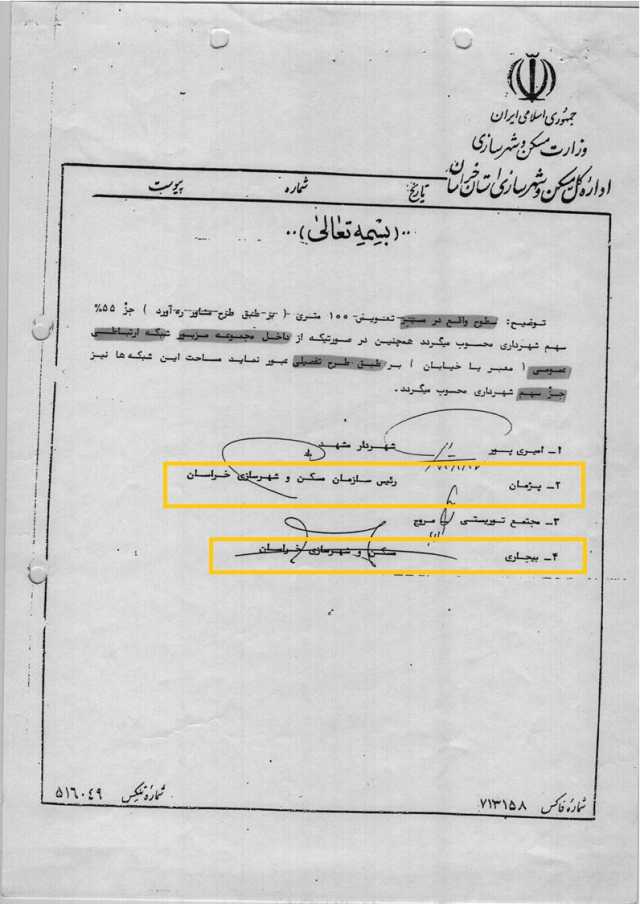 جمهوری اسلامی ایران
وزارت مسکن و شهرسازی
اداره کل مسکن و شهرسازی استان خراسان
تاریخ شماره پیوست
(بسمه تعالی)
توضیح: سطوح واقع در مسیر تعویضی ۱۰۰ متری ( بر طبق طرح مشاور ره آورد ) جزُ ۵۵%
سهم شهرداری محسوب میگردد همچنین در صورتیکه از داخل مجموعه مزبور شبکه ارتباطی
عمومی ( معبر یا خیابان ) بر طبق طرح تفصیلی عبور نماید مساحت این شبکه ها نیز
جزُ سهم شهرداری محسوب میگردد.
۱ـ امیری پور شهردار مشهد
۲ـ پژمان رئیس سازمان مسکن و شهرسازی خراسان
۳ـ مجتمع توریستی مروج
۴ـ بیجاری مسکن و شهرسازی خراسان
شماره فاکس ۷۱۳۱۵۸ شماره تلکس ۵۱۶۰۴۹